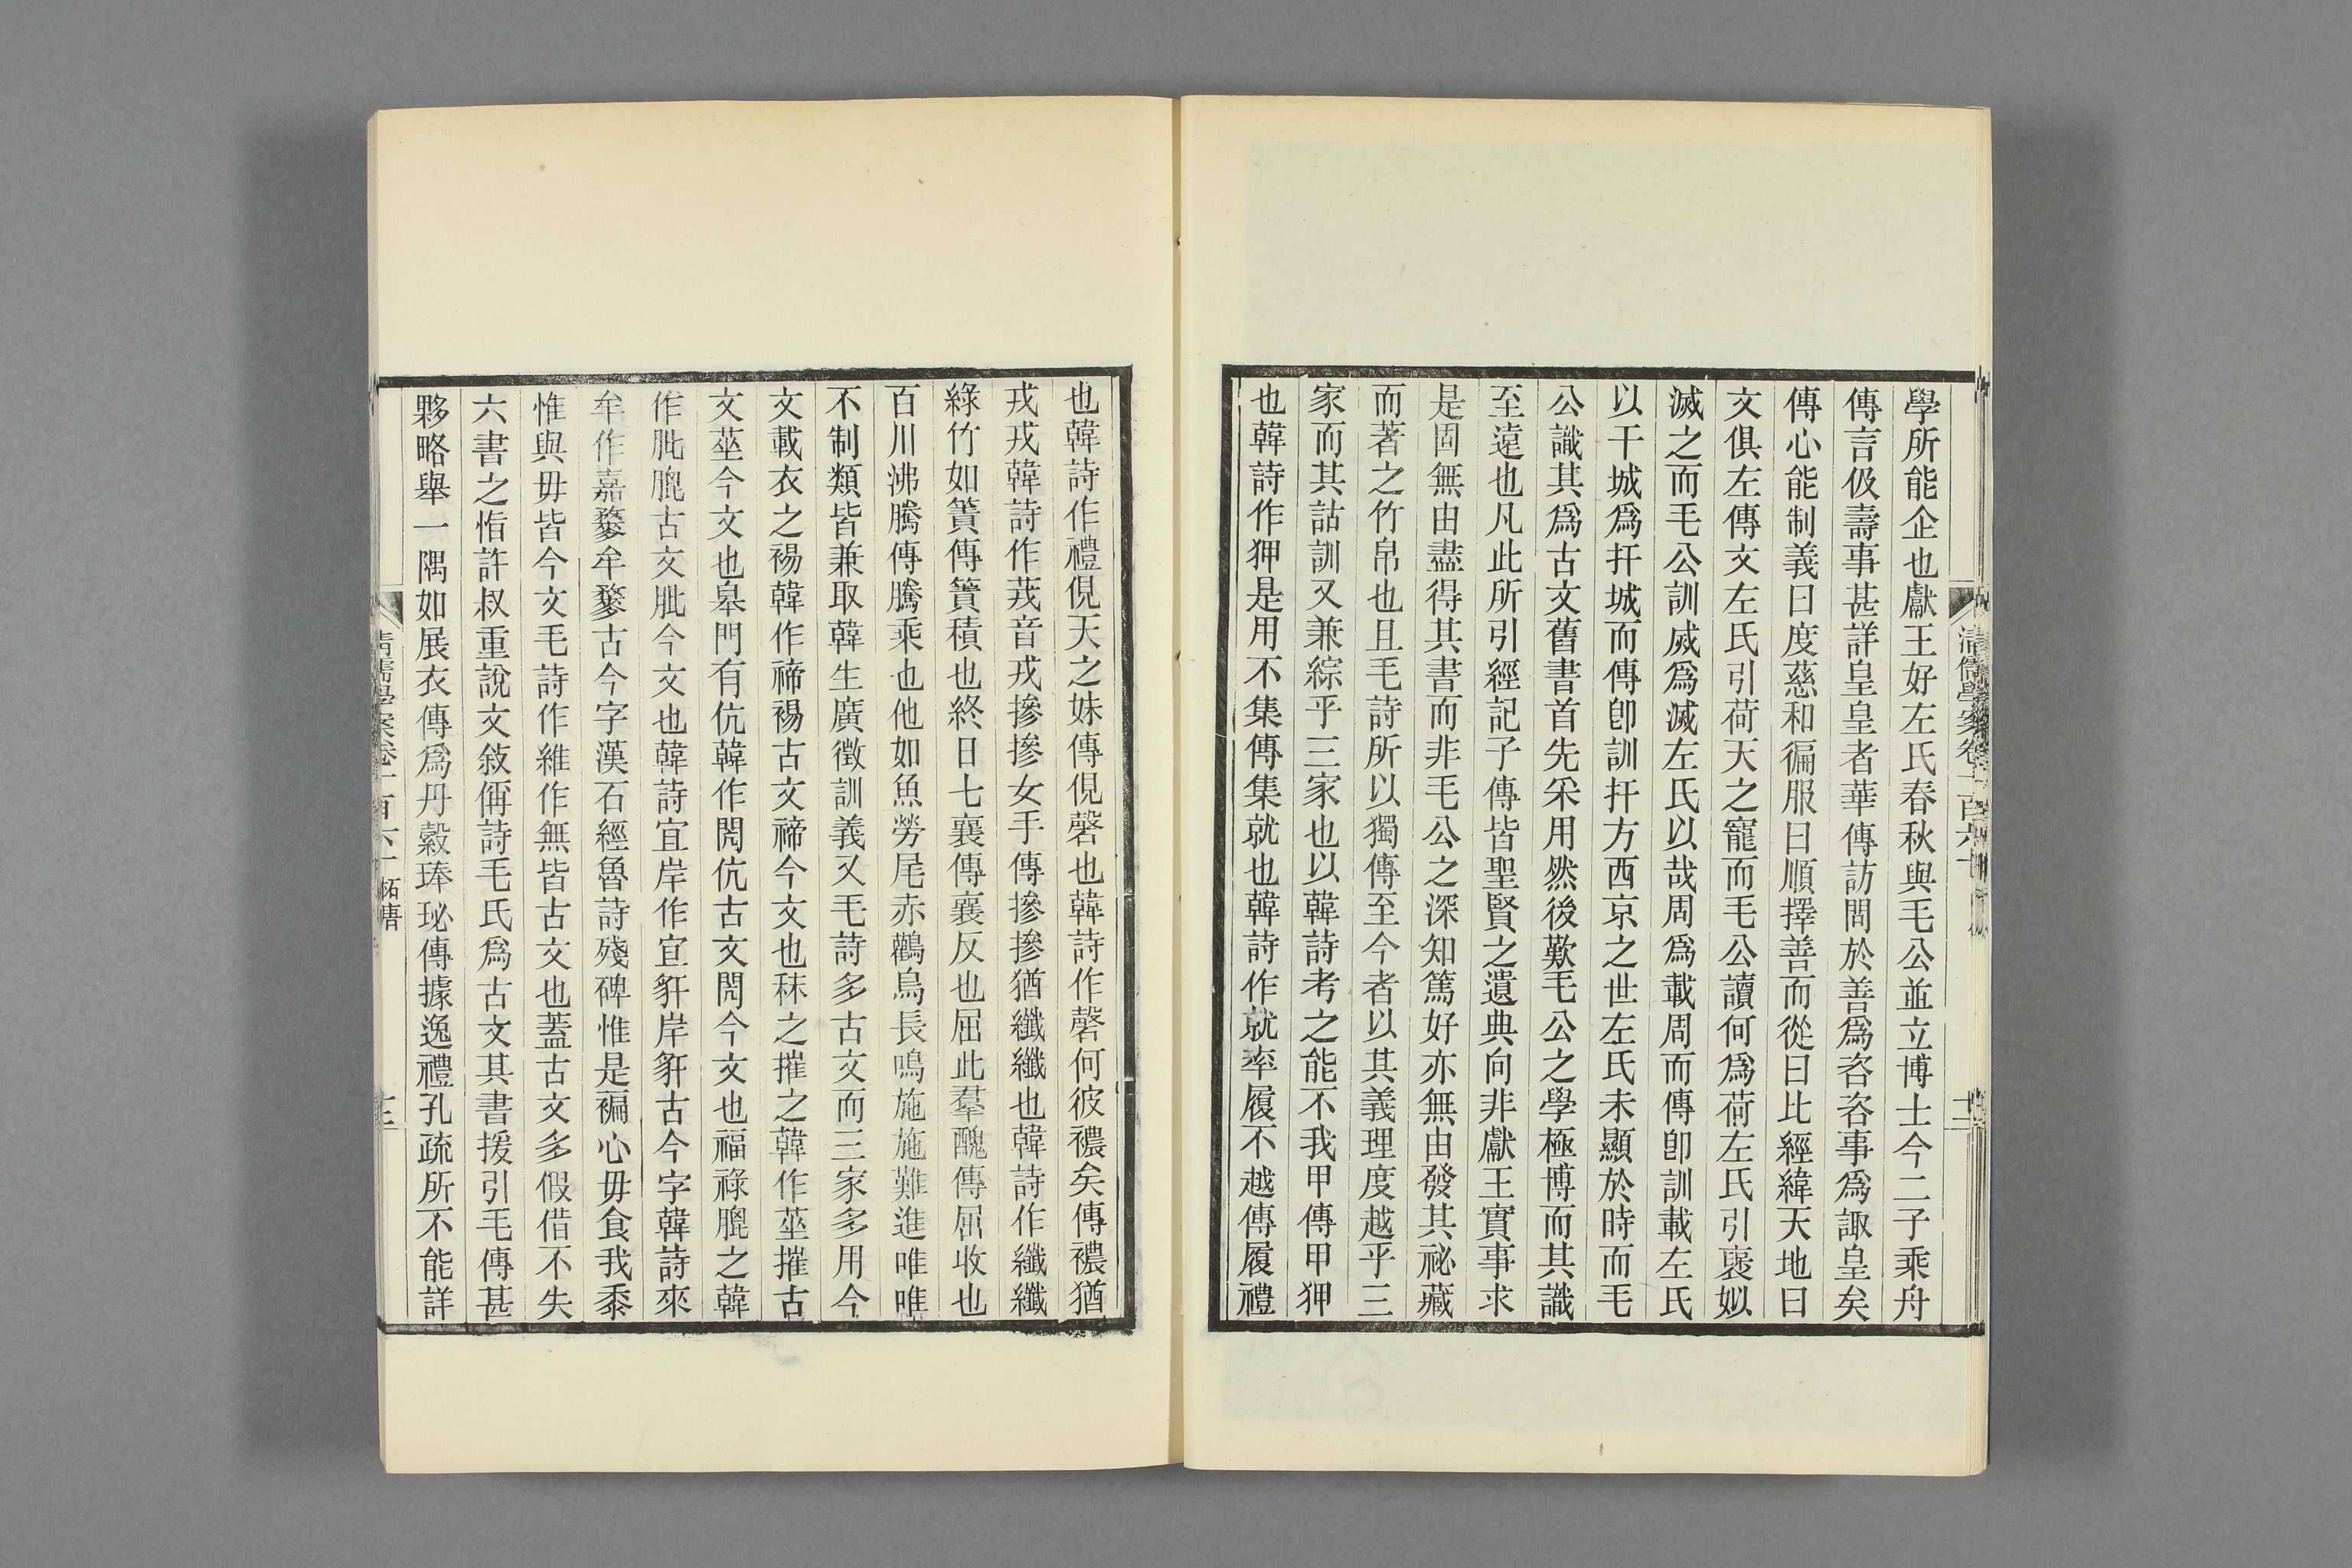 學所能企也獻王好左氏春秋與毛公並立博士今二子乘舟
傳言伋壽事甚詳皇皇者華傳訪問於善爲咨咨事爲諏皇矣
傳心能制義曰度慈和徧服曰順擇善而從曰比經緯天地曰
文俱左傳文左氏引荷天之寵而毛公讀何爲荷左氏引襃姒
滅之而毛公訓烕爲滅左氏以哉周爲載周而傳卽訓載左氏
以干城爲扞城而傳卽訓扞方西京之世左氏未顯於時而毛
公識其爲古文舊書首先采用然後歎毛公之學極博而其識
至遠也凡此所引經記子傳皆聖賢之遺典向非獻王實事求
是固無由盡得其書而非毛公之深知篤好亦無由發其祕藏
而著之竹帛也且毛詩所以獨傳至今者以其義理度越乎三
家而其詁訓又兼綜乎三家也以韓詩考之能不我甲傳甲狎
也韓詩作狎是用不集傳集就也韓詩作就率履不越傳履禮
也韓詩作禮俔天之妹傳俔磬也韓詩作磬何彼襛矣傳襛猶
戎戎韓詩作茙音戎摻摻女手傳摻摻猶纖纖也韓詩作纖纖
綠竹如簀傳簀積也終日七襄傳襄反也屈此羣醜傳屈收也
百川沸騰傳騰乘也他如魚勞尾赤鸛鳥長鳴施施難進唯唯
不制類皆兼取韓生廣徵訓義又毛詩多古文而三家多用今
文載衣之裼韓作褅裼古文褅今文也秣之摧之韓作莝摧古
文莝今文也皋門有伉韓作閌伉古文閌今文也福祿膍之韓
作肶膍古文肶今文也韓詩宜岸作宜犴岸犴古今字韓詩來
牟作嘉䵀牟䵀古今字漢石經魯詩殘碑惟是褊心毋食我黍
惟與毋皆今文毛詩作維作無皆古文也蓋古文多假借不失
六書之恉許叔重說文敘偁詩毛氏爲古文其書援引毛傳甚
夥略舉一隅如展衣傳爲丹縠琫珌傳據逸禮孔疏所不能詳
清儒學案卷一百六十
二